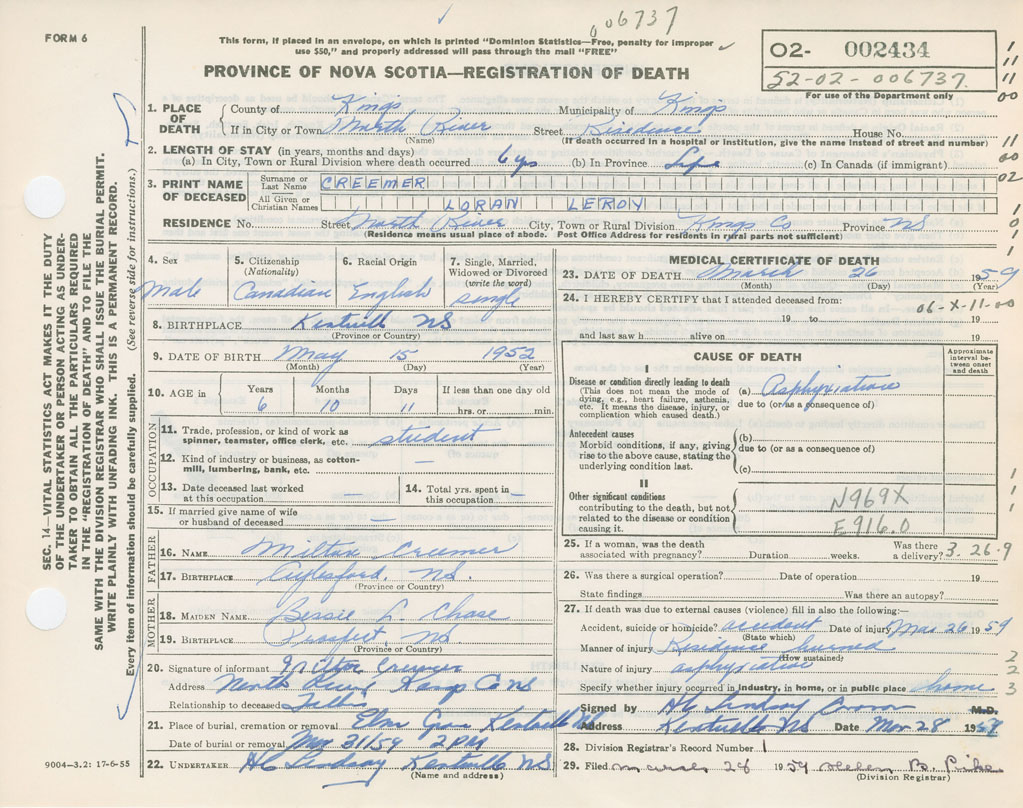 006737
FORM 6
This form, if placed in an envelope, on which is printed "Dominion Statistics—Free, penalty for improper
use $50," and properly addressed will pass through the mail "FREE"
02- 002434
52-02-006737.
For use of the Department only
PROVINCE OF NOVA SCOTIA—REGISTRATION OF DEATH
SEC. 14—VITAL STATISTICS ACT MAKES IT THE DUTY
OF THE UNDERTAKER OR PERSON ACTING AS UNDER-
TAKER TO OBTAIN ALL THE PARTICULARS REQUIRED
IN THE "REGISTRATION OF DEATH" AND TO FILE THE
SAME WITH THE DIVISION REGISTRAR WHO SHALL ISSUE THE BURIAL PERMIT.
WRITE PLAINLY WITH UNFADING INK. THIS IS A PERMANENT RECORD.
Every item of information should be carefully supplied. (See reverse side for instructions.)
1. PLACE OF DEATH County of Kings Municipality of Kings
If in City or Town North River Street Residence House No.
(Name) (If death occurred in a hospital or Institution, give the name instead of street and number)
2. LENGTH OF STAY (in years, months and days)
(a) In City, Town or Rural Division where death occurred. 6 yrs (b) In Province Life (c) In Canada (if immigrant)
3. PRINT NAME OF DECEASED Surname or Last Name CREEMER
All Given or Christian Names LORAN LEROY
RESIDENCE No. Street North River City, Town or Rural Division Kings Co Province NS
(Residence means usual place of abode. Post Office Address for residents in rural parts not sufficient)
4. Sex 5. Citizenship (Nationality) 6. Racial Origin 7. Single, Married, Widowed or Divorced (write the word)
Male Canadian English single
8. BIRTHPLACE Kentville NS
(Province or Country)
9. DATE OF BIRTH May 15 1952
(Month) (Day) (Year)
10. AGE in Years Months Days If less than one day old
6 10 11 hrs. or min.
OCCUPATION
11. Trade, profession, or kind of work as
spinner, teamster, office clerk, etc. student
12. Kind of industry or business, as cotton-
mill, lumbering, bank, etc. —
13. Date deceased last worked at this occupation — 14. Total yrs. spent in this occupation —
15. If married give name of wife
or husband of deceased —
FATHER
16. NAME Milton Creemer
17. BIRTHPLACE Aylesford, NS.
(Province or Country)
MOTHER
18. MAIDEN NAME Bessie L. Chase
19. BIRTHPLACE Prospect, NS
(Province or Country)
20. Signature of informant Milton Creemer
Address North River Kings Co NS
Relationship to deceased Father
21. Place of burial, cremation or removal Elm Grove Kentville NS
Date of burial or removal Mar 31/59 2 PM
22. UNDERTAKER HC Lindsay Kentville NS
(Name and address)
9004—3.2: 17-6-55
MEDICAL CERTIFICATE OF DEATH
23. DATE OF DEATH March 26 1959
(Month) (Day) (Year)
24. I HEREBY CERTIFY that I attended deceased from: 06-X-11-00
19 to 19
and last saw h alive on 19
CAUSE OF DEATH
Approximate interval between onset and death
I
Disease or condition directly leading to death
(This does not mean the mode of
dying, e.g., heart failure, asthenia,
etc. It means the disease, injury, or
complication which caused death.)
(a) Asphyxiation
due to (or as a consequence of)
Antecedent causes
Morbid conditions, if any, giving
rise to the above cause, stating the
underlying condition last.
(b)
due to (or as a consequence of)
(c)
II
Other significant conditions
contributing to the death, but not
related to the disease or condition
causing it.
N969X
E916.0
25. If a woman, was the death Was there
associated with pregnancy? Duration weeks. a delivery? 3.26.9
26. Was there a surgical operation? Date of operation 19
State findings Was there an autopsy?
27. If death was due to external causes (violence) fill in also the following:—
Accident, suicide or homicide? accident Date of injury Mar 26 1959
(State which)
Manner of injury Residence burned
(How sustained)
Nature of injury asphyxiation
Specify whether injury occurred in industry, in home, or in public place home
Signed by HC Lindsay Coroner M.D.
Address Kentville NS Date Mar 28 1959
28. Division Registrar's Record Number 1
29. Filed March 28 1959 Helen B. Pike
(Division Registrar)